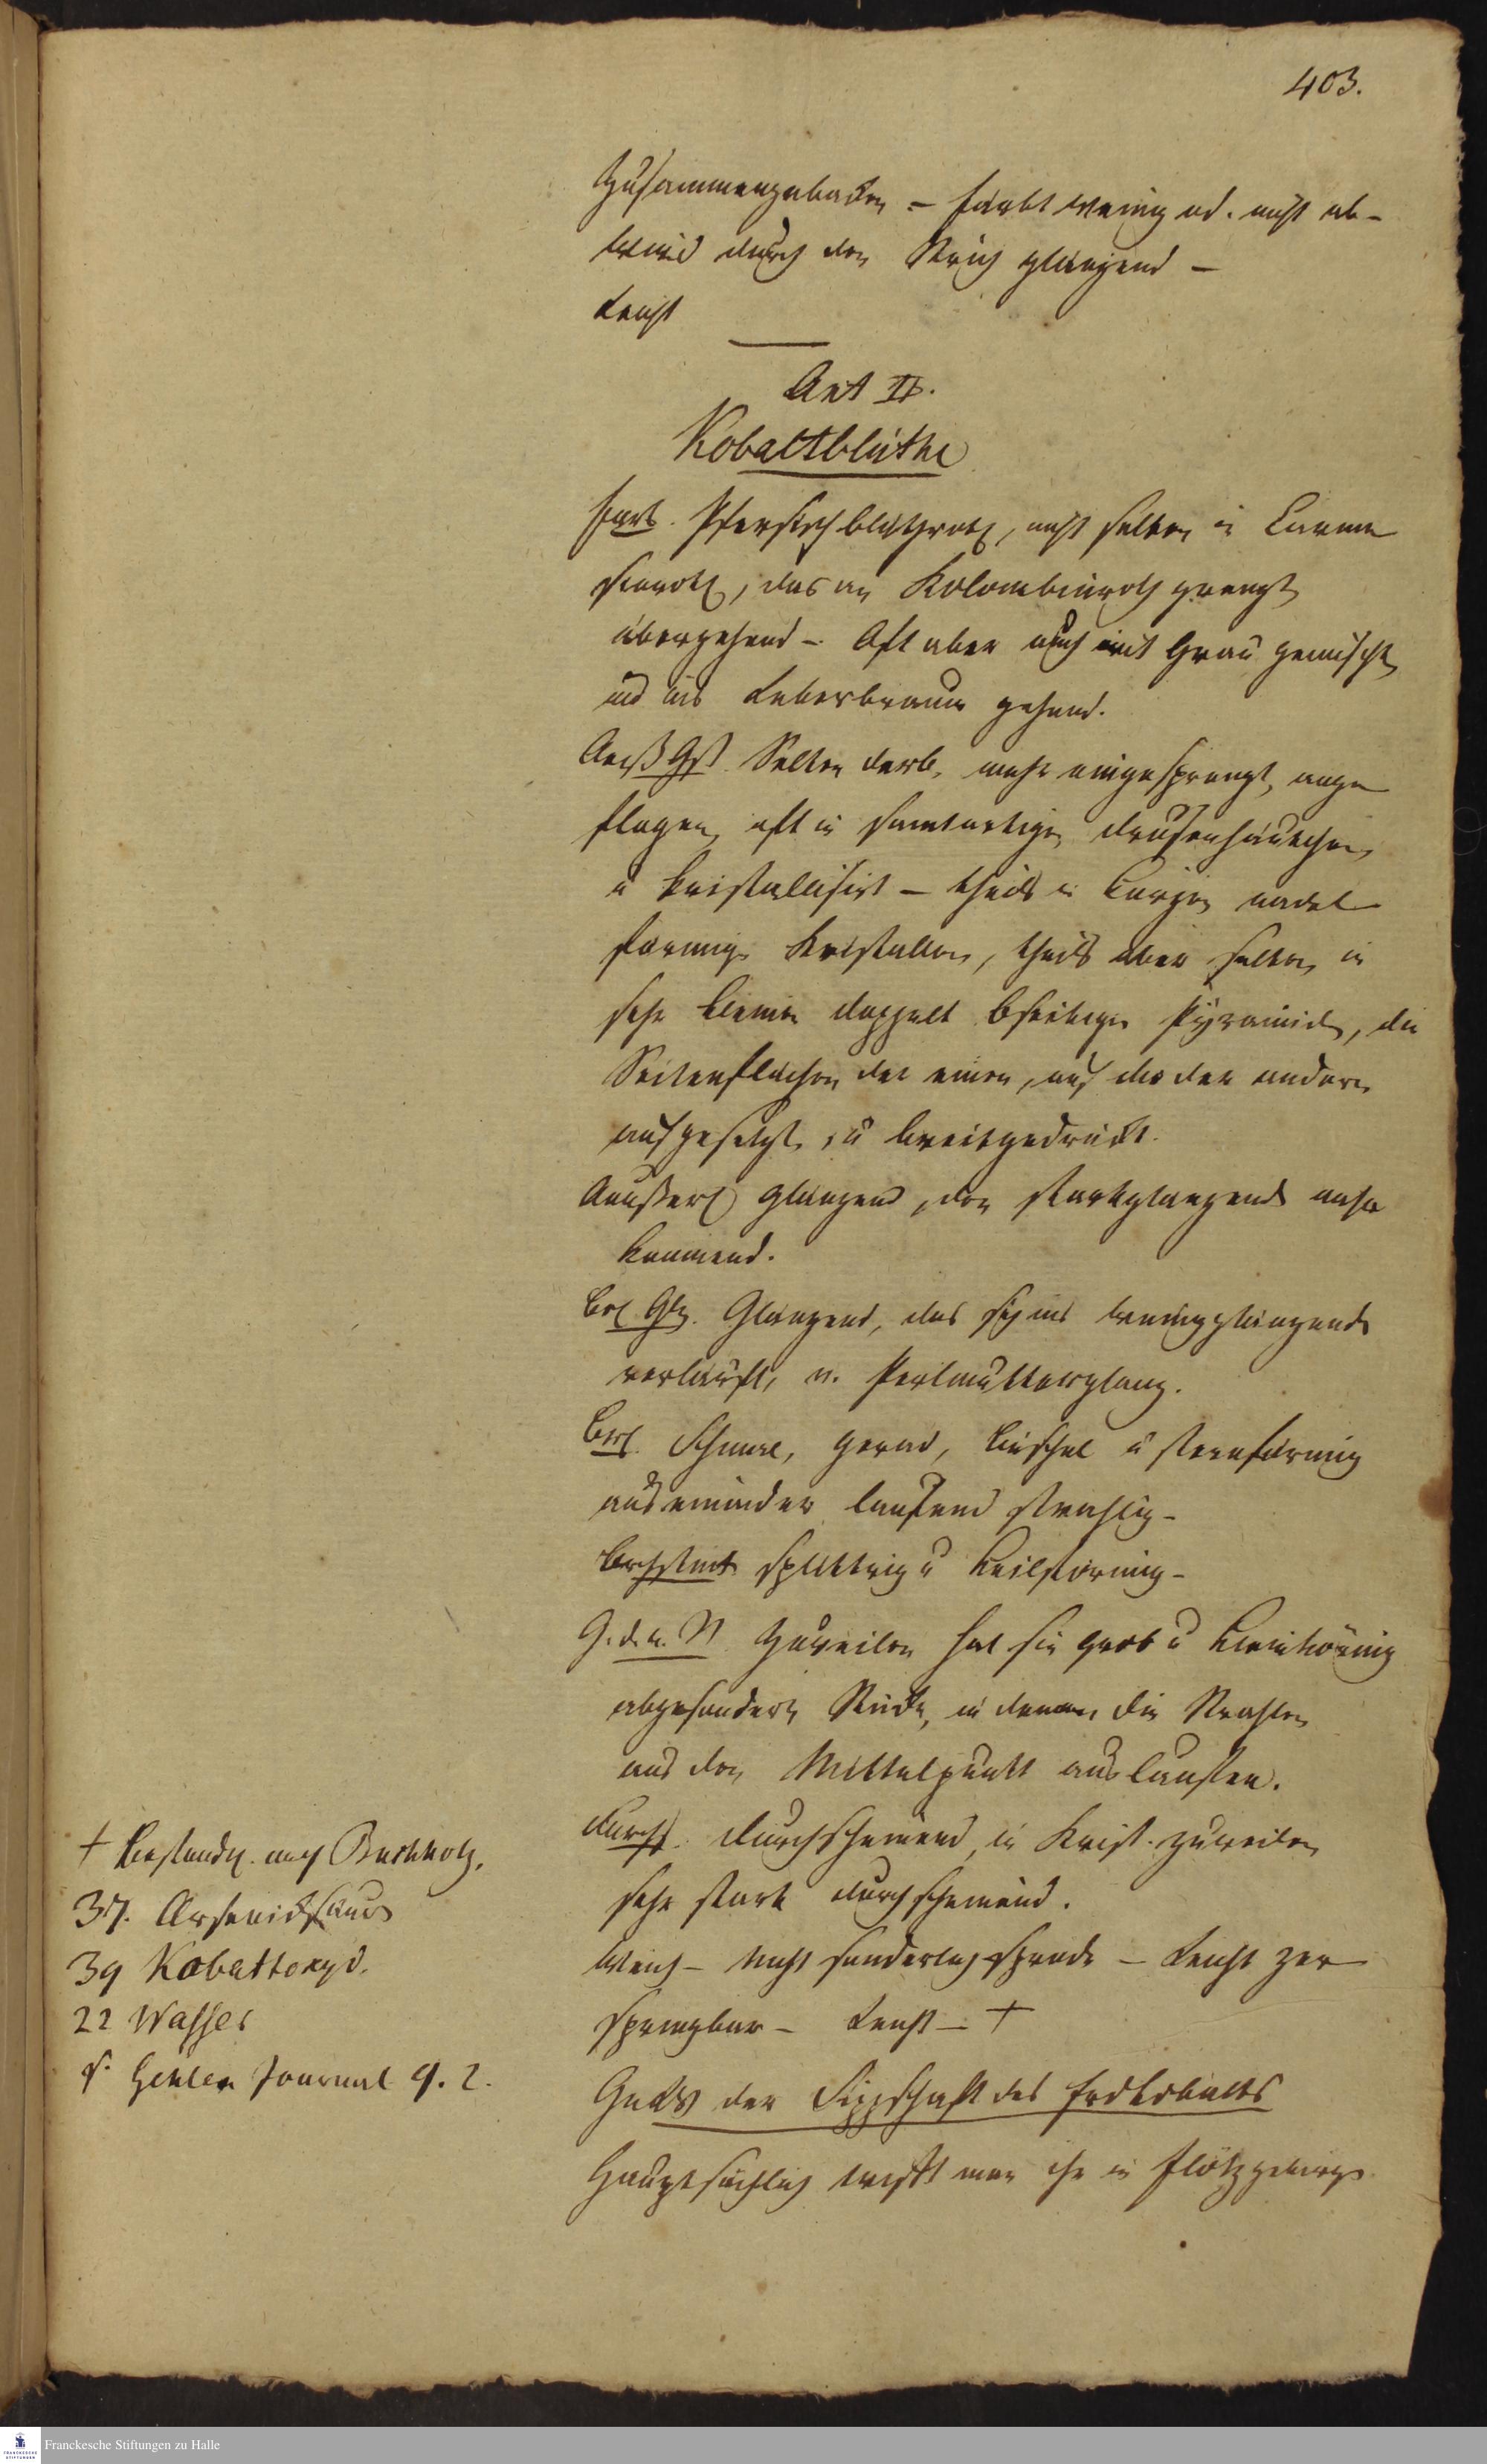 403.
Zusammengebacken – färbt wenig od. nicht ab –
wird durch den Strich glänzend –
Leicht
Art II.
Kobaltblüthe
Farb. Pfersichblüthroth, nicht selten in Carme
sinroth, das an Kolombinroth grenzt
übergehend – Oft aber auch mit Grau gemischt,
und ins Leberbraun gehend.
Aeuß Gst. Selten derb, mehr eingesprengt, ange
flogen, oft in samtartigen Drusenhäutchen,
u kristallisirt – theils in kurzen nadel
förmigen Kristallen, theils aber selten in
sehr kleinen doppelt 6seitigen Pyramiden, die
Seitenflächen der einen, auf die der andern
aufgesetzt, u breitgedrückt.
Aeußerl glänzend, dem starkglänzenden nahe
kommend.
Brl. Glz. Glänzend, das sich ins wenigglänzende
verläuft, v. Perlmutterglanz.
Brch. Schmal, gerad, büschel u sternförmig
auseinander laufend strahlig –
Brchstück splittrig u keilförmig –
G. d. u. St Zuweilen hat sie grob u kleinkörnig
abgesonderte Stücke, in denen die Strahlen
aus dem Mittelpunkt auslaufen.
Durchs. Durchscheinend, in Krist. zuweilen
sehr stark durchscheinend.
Weich – Nicht sonderlich spröde – Leicht zer
springbar – Leicht – +
der Sippschaft des Erdkobalts
Hauptsächlich trifft man ihn in Flötzgebirge
+ Bestandth. nach Buchholz.
37. Arsenicksäure
39 Kobaltoxyd.
22 Wasser
s. Gehlen Journal 9. 2.
Franckesche Stiftungen zu Halle